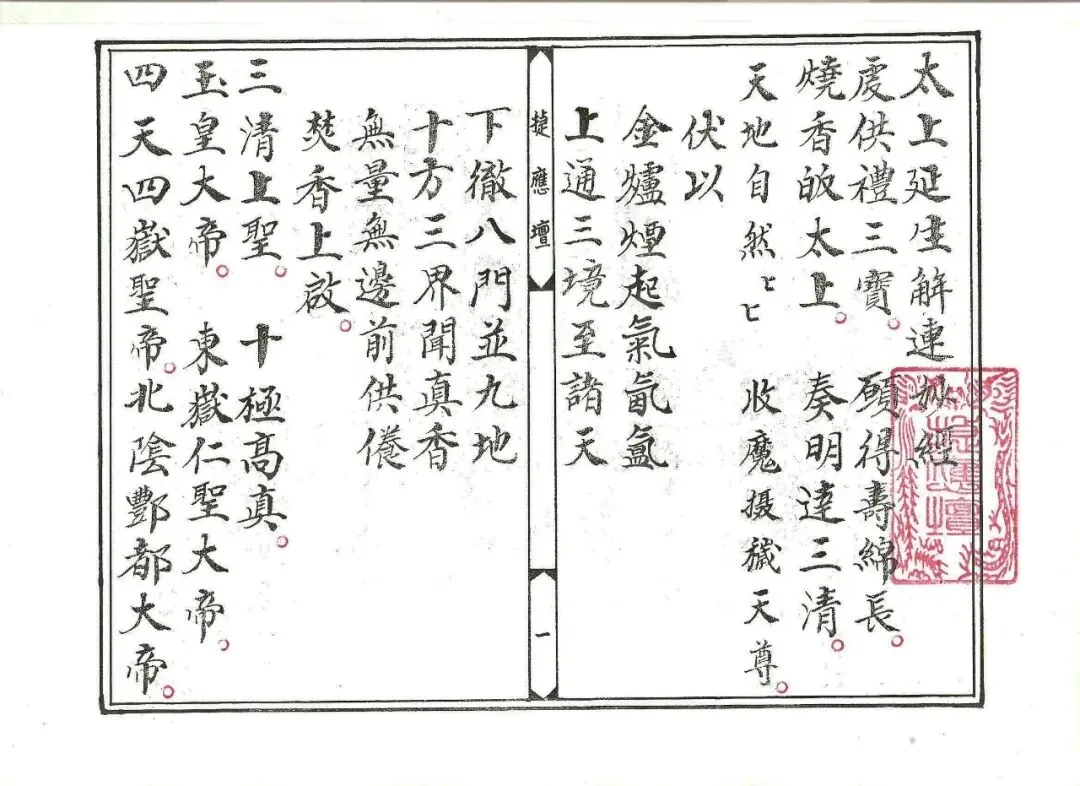 太上延生解連妙經
虔供禮三寶。 願得壽綿長。
燒香皈太上。 奏明達三清。
天地自然〻〻 收魔摄穢天尊。
伏以
金爐煙起氣氤氳
上通三境至諸天
捷應壇
一
下徹八門並九地
十方三界聞真香
無量無邊前供養
焚香上啟。
三清上聖。 十極高真。
玉皇大帝。 東嶽仁聖大帝。
四天四嶽聖帝。北陰酆都大帝。